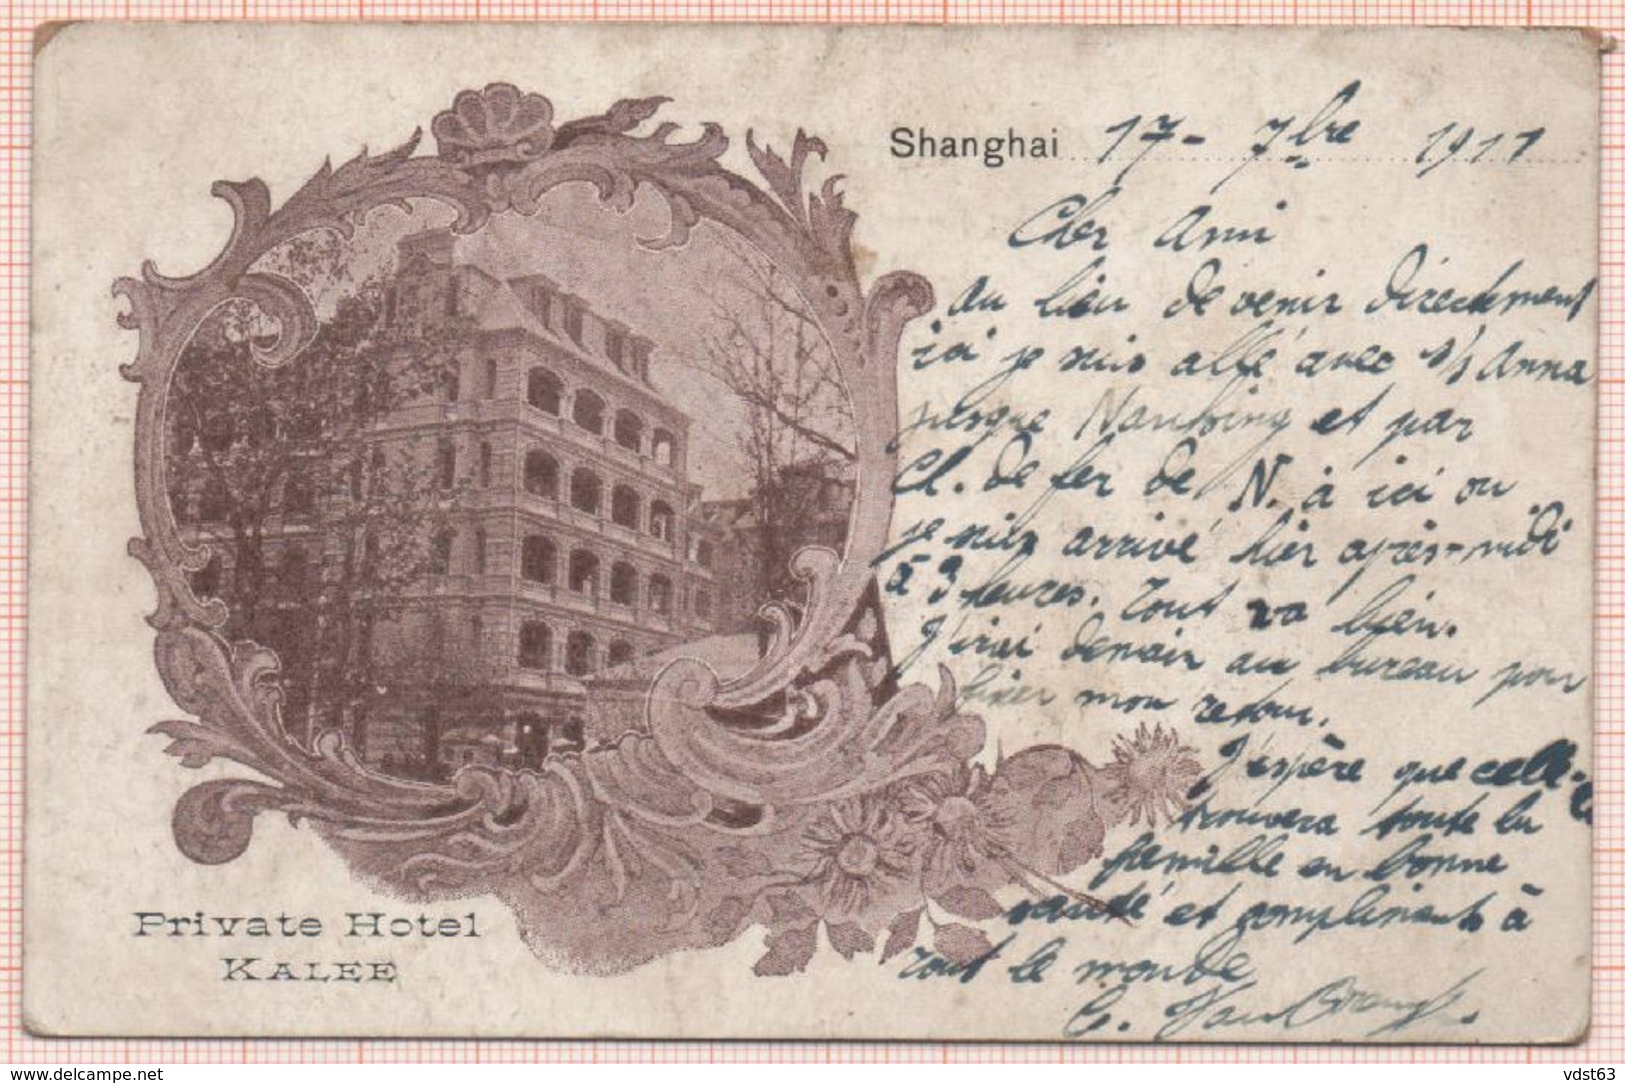 Shanghai 17 - 7bre 1911
Cher Ami
au lieu de venir directement
ici je suis allé avec s/s Anna
presque Nanking et par
Ch. de fer de N. à ici ou
je suis arrivé hier après-midi
à 3 heures. Tout va bien.
J'irai demain au bureau pour
fixer mon retour.
J'espère que celle-ci
trouvera toute la
famille en bonne
santé et compliments à
tout le monde
C. Van
Private Hotel
KALEE
www.delcampe.net
vdst63